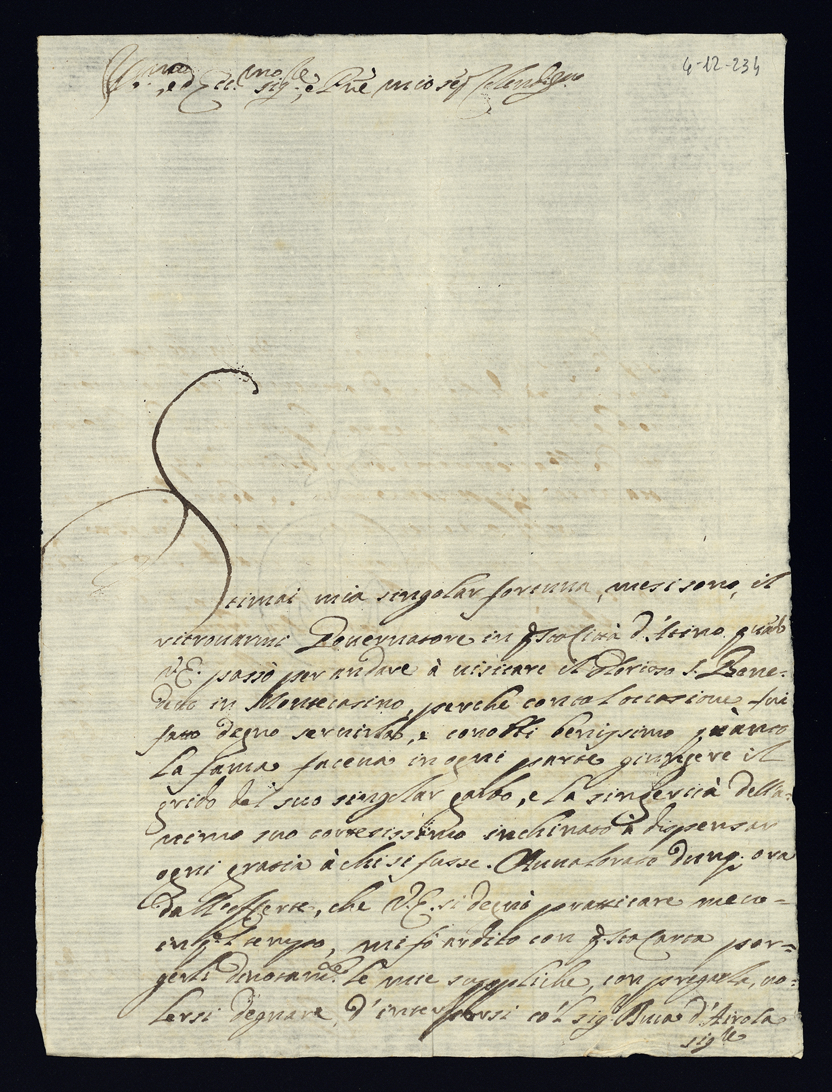 4-12-234
Ill.mo ed Ecc.mo sig.re e P.ne mio sig.r
Stimai mia singolar fortuna, mesi sono, il
ritrouarmi Gouernatore in q.sta Città d'Atino, quãdo
V.E. passò per andare à uisitare il Glorioso S. Bene-
detto in Montecasino, perche con tal occasione fui
fatto degno seruirla, e conobbi benissimo quanto
la fama faceua in ogni parte giungere il
grido del suo singolar garbo, e la sincerità dell'a-
nimo suo cortesissimo inchinato à dispensar
ogni gratia à chi si fusse. Aualorato dunq. ora
dall'offerte, che V.E. si degnò pratticare meco
in q.l tempo, mi fò ardito con q.sta Carta por-
gerli le mie suppliche, con pregarla, uo-
lersi degnare d'interporsi co'l sig.r Duca d'Airola
sig.re